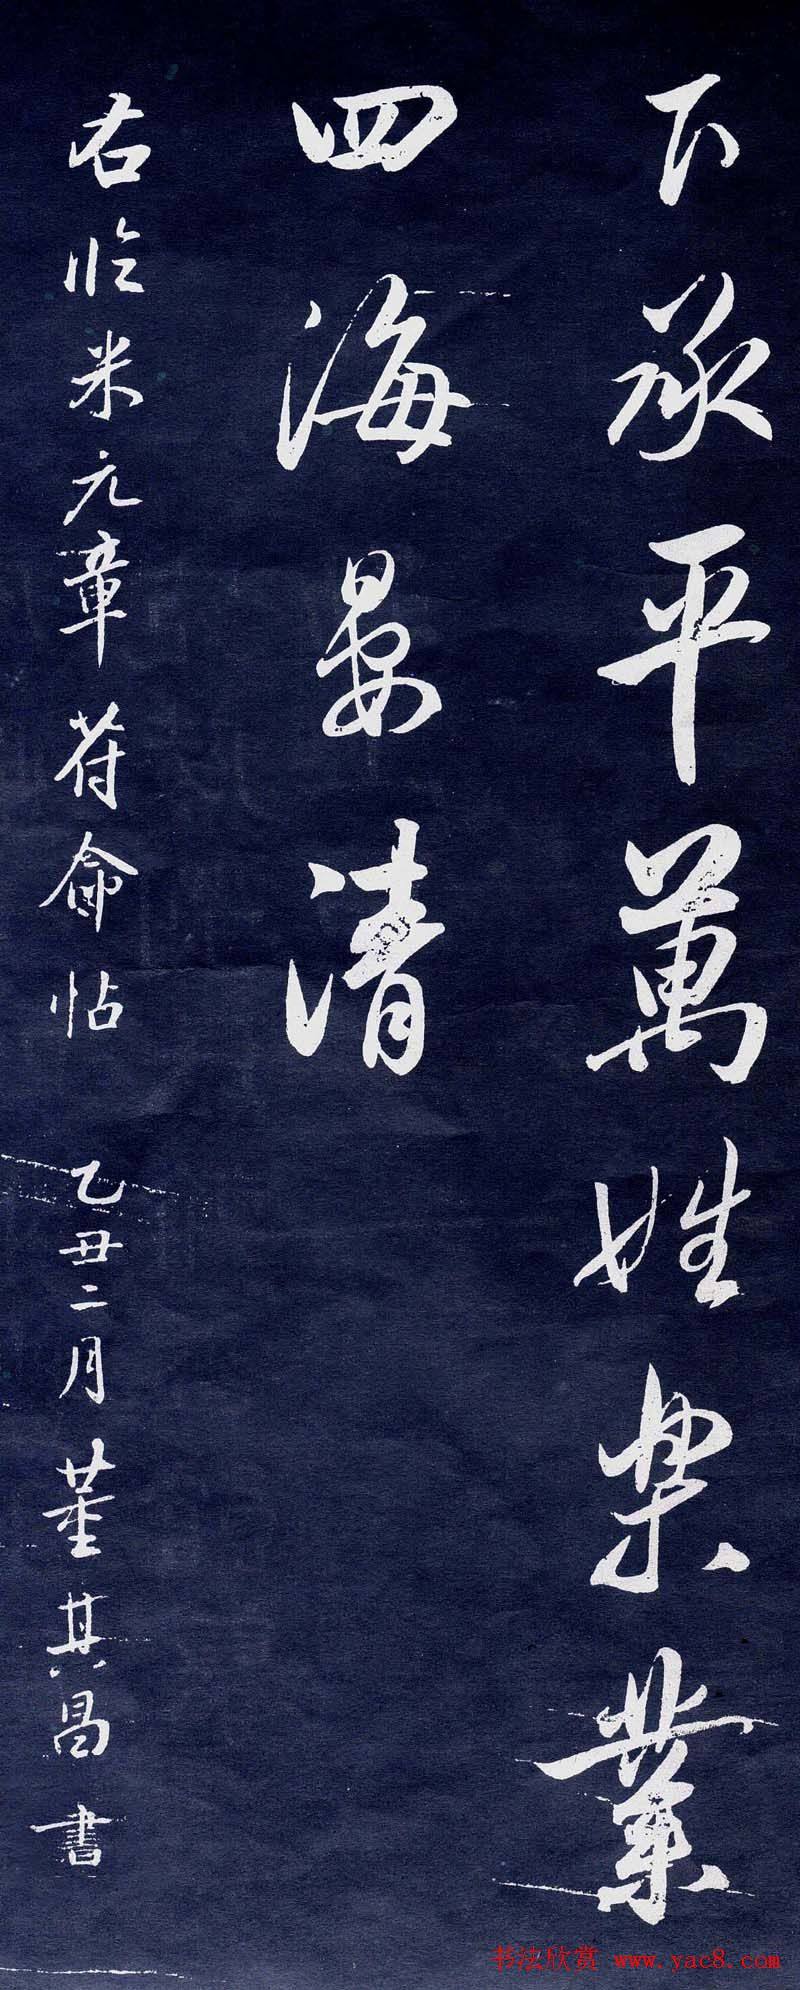 下承平萬姓樂業
四海晏清
右临米元章符命帖 乙丑二月董其昌書
书法欣赏 www.yac8.com